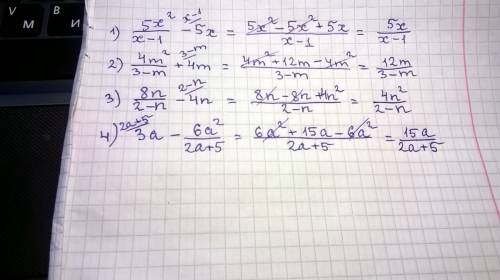 V В
М И
1) 5x²/(x-1) - 5x^(x-1) = (5x² - 5x² + 5x)/(x-1) = 5x/(x-1)
2) 4m²/(3-m) + 4m^(3-m) = (4m² + 12m - 4m²)/(3-m) = 12m/(3-m)
3) 8n/(2-n) - 4n^(2-n) = (8n - 8n + 4n²)/(2-n) = 4n²/(2-n)
4) ^(2a+5)3a - 6a²/(2a+5) = (6a² + 15a - 6a²)/(2a+5) = 15a/(2a+5)